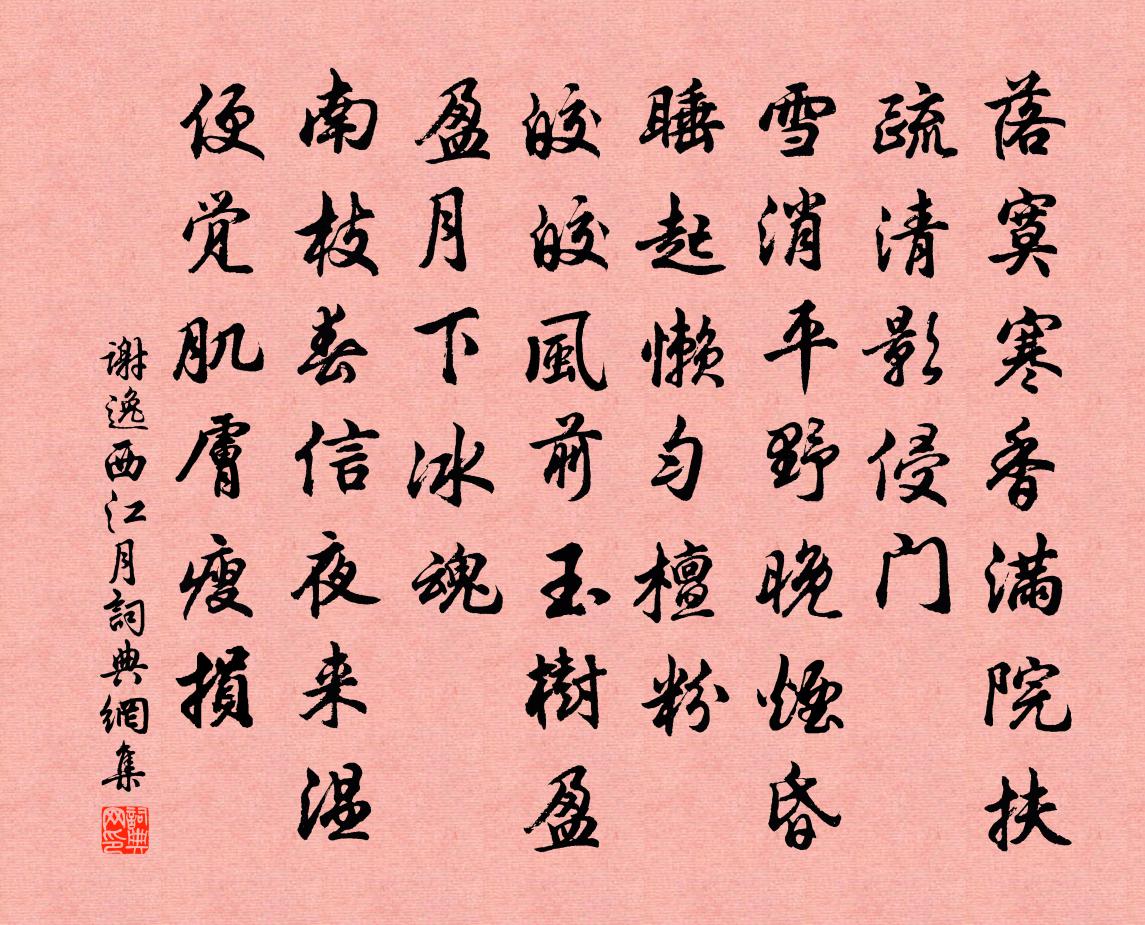 落寞寒香满院扶
疏清影侵门
雪消平野晚煙昏
睡起懒匀檀粉
皎皎風前玉樹盈
盈月下冰魂
南枝春信夜来温
便觉肌膚瘦損
谢逸西江月詞典網集
詞典网印